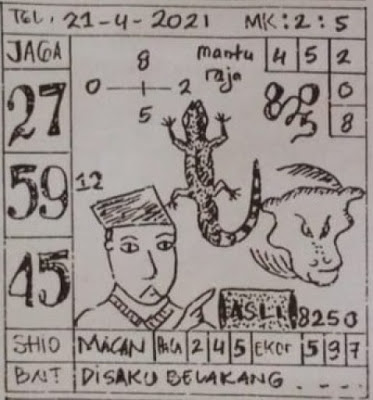 TGL. 21-4-2021 MK:2:5
JAGA
27
59
45
8
0 — 1 — 2
5
mantu
raja
4 5 2
0
8
12
ASLI
8250
SHIO MACAN 2 4 5 EKOR 5 9 7
BNT DISAKU BELAKANG ....